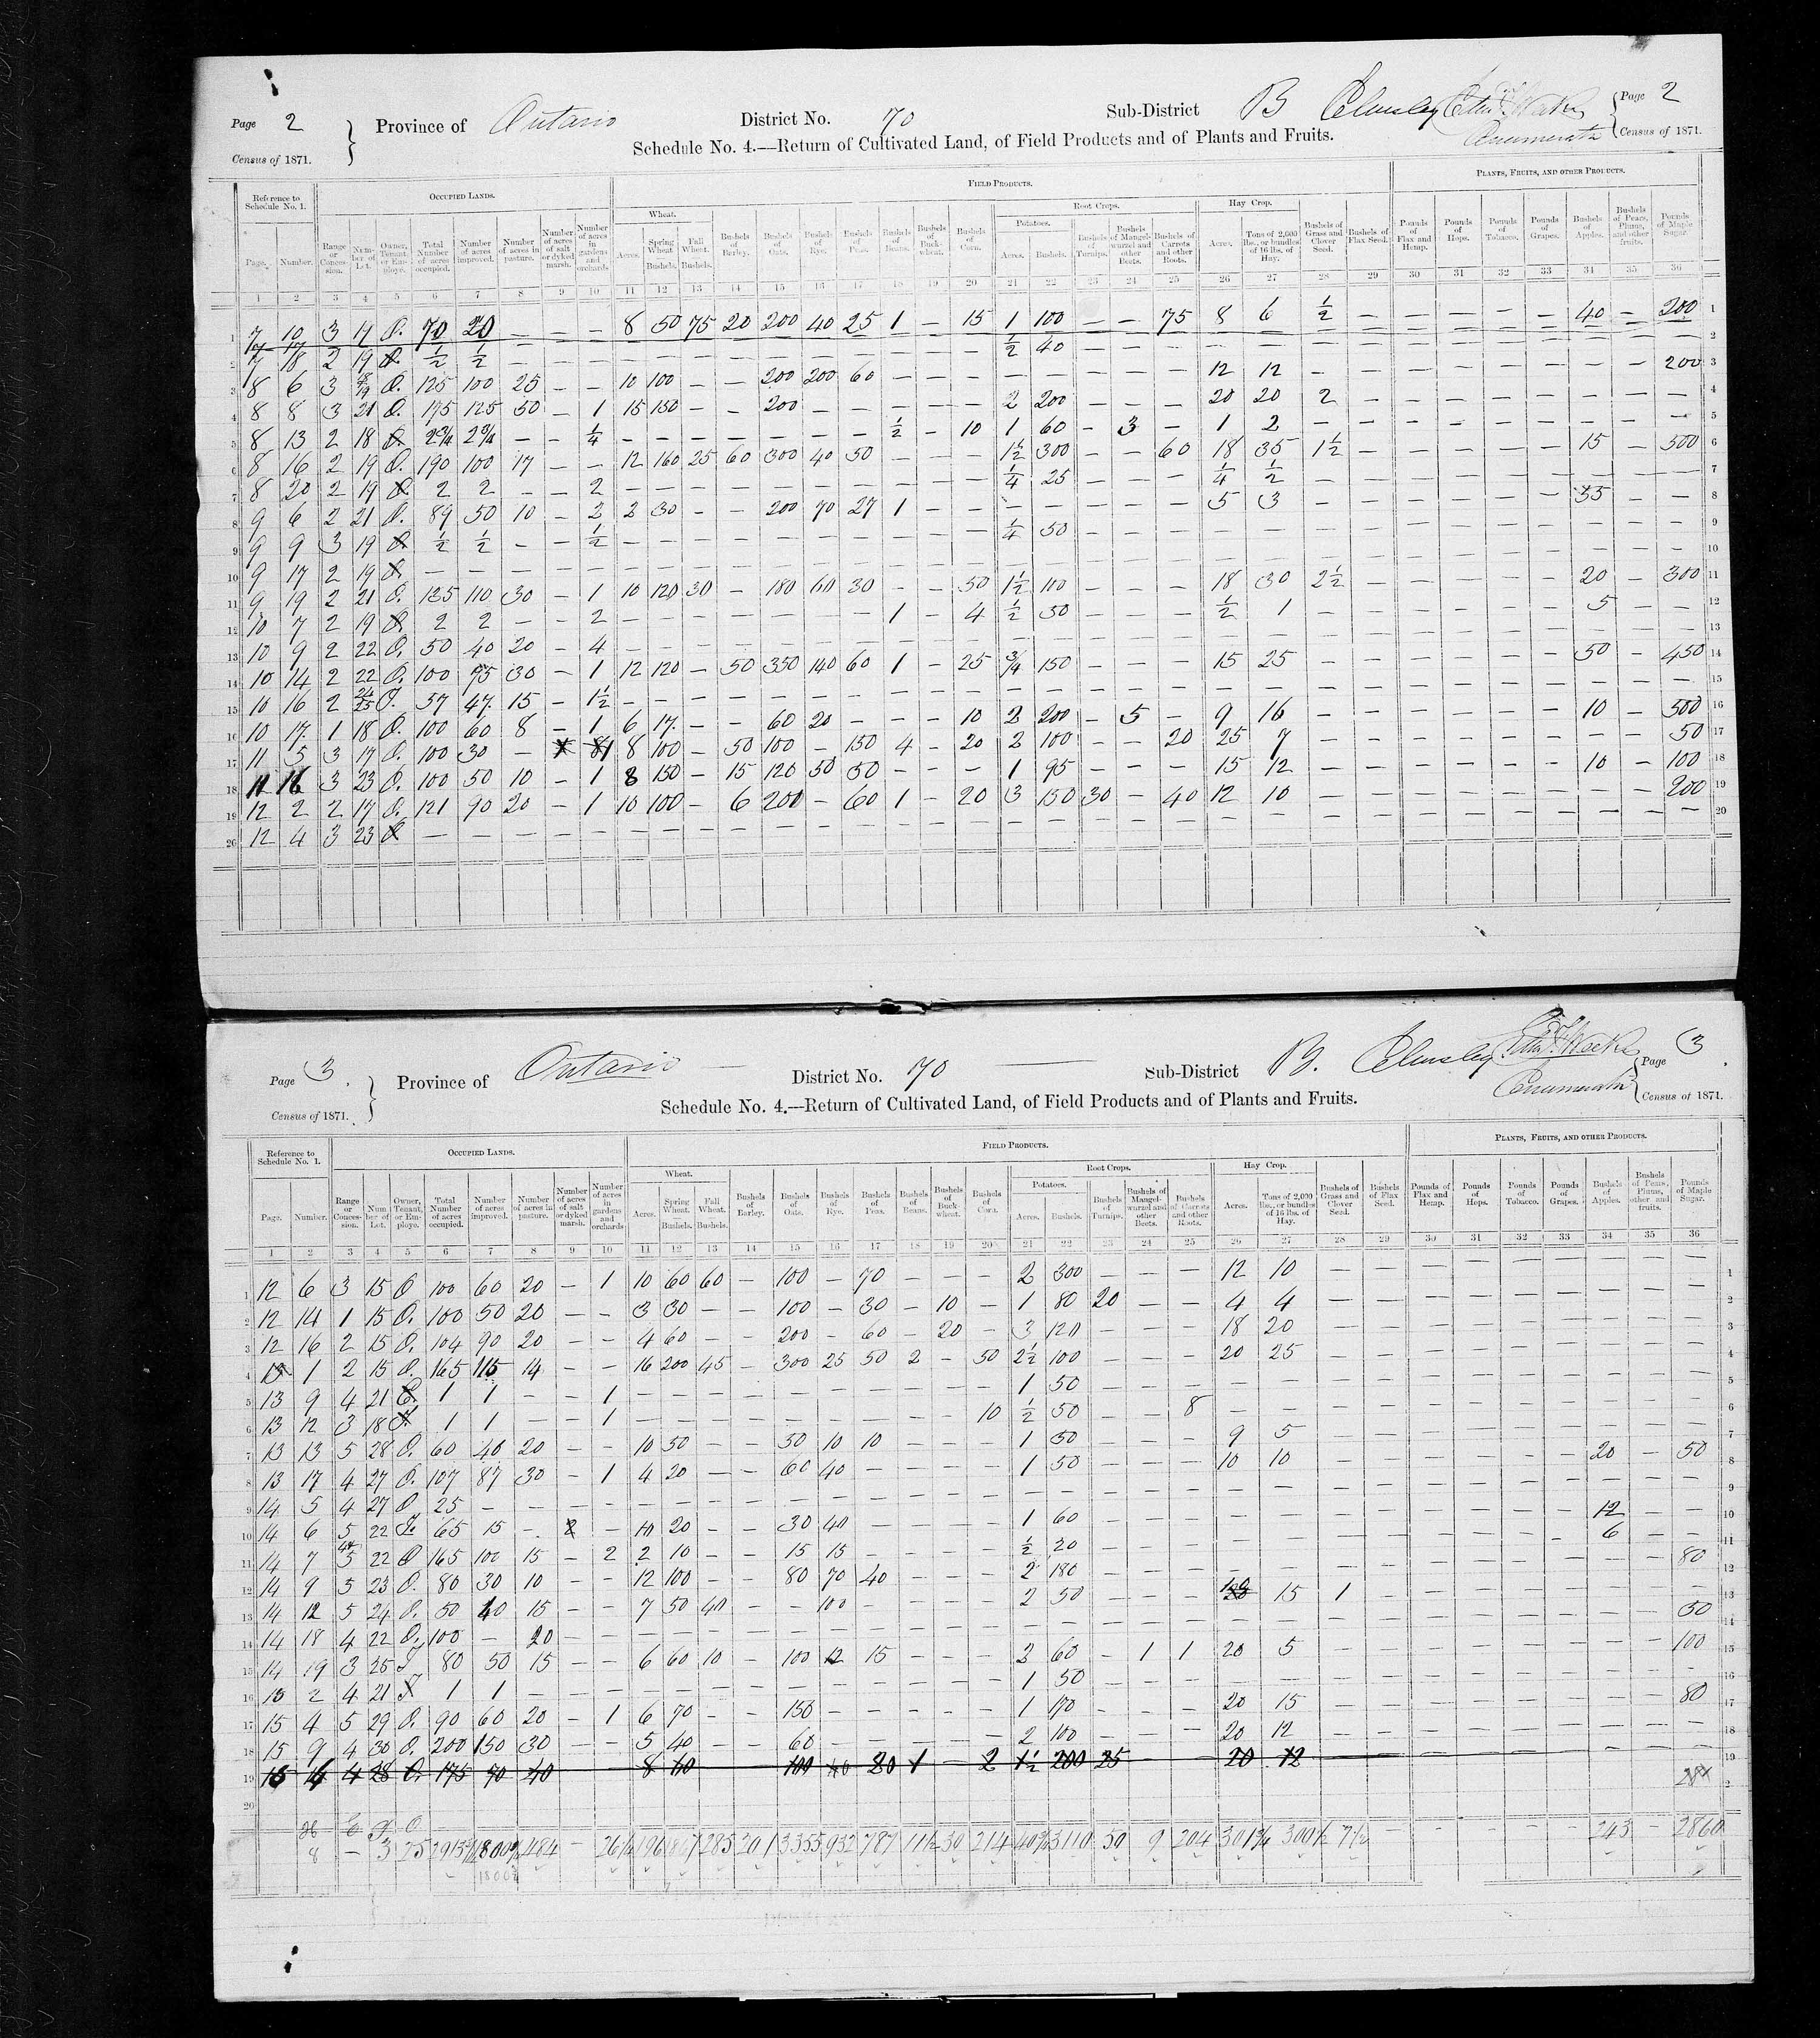 Page 2 Province of Ontario District No. 70 Sub-District B Elmsley Page 2
Census of 1871. Schedule No. 4.—Return of Cultivated Land, of Field Products and of Plants and Fruits. Enumerator Census of 1871.
Reference to Schedule No. 1. OCCUPIED LANDS. FIELD PRODUCTS. PLANTS, FRUITS, AND OTHER PRODUCTS.
Wheat. Root Crops. Hay Crop.
Potatoes.
Page. Number. Range or Concession. Number of Lot. Owner, Tenant or Employe. Total Number of acres occupied. Number of acres improved. Number of acres in pasture. Number of acres of salt or dyked marsh. Number of acres in gardens and orchards. Acres. Spring Wheat Bushels. Fall Wheat. Bushels. Bushels of Barley. Bushels of Oats. Bushels of Rye. Bushels of Peas. Bushels of Beans. Bushels of Buckwheat. Bushels of Corn. Acres. Bushels. Bushels of Turnips. Bushels of Mangel-wurzel and other Beets. Bushels of Carrots and other Roots. Acres. Tons of 2,000 lbs., or bundles of 16 lbs. of Hay. Bushels of Grass and Clover Seed. Bushels of Flax Seed. Pounds of Flax and Hemp. Pounds of Hops. Pounds of Tobacco. Pounds of Grapes. Bushels of Apples. Bushels of Pears, Plums, and other fruits. Pounds of Maple Sugar.
1 2 3 4 5 6 7 8 9 10 11 12 13 14 15 16 17 18 19 20 21 22 23 24 25 26 27 28 29 30 31 32 33 34 35 36
1 7 10 3 17 O. 70 20 — — — 8 50 75 20 200 40 25 1 — 15 1 100 — — 75 8 6 ½ — — — — — 40 — 200 1
2 7 18 2 19 O. ½ ½ — — — — — — — — — — — — — ½ 40 2
3 8 6 3 18/19 O. 125 100 25 — — 10 100 — — 200 200 60 — — — — — — — — 12 12 — — — — — — — — 200 3
4 8 8 3 21 O. 175 125 50 — 1 15 150 — — 200 — — — — — 2 200 — — — 20 20 2 — — — — — — — — 4
5 8 13 2 18 O. 2¾ 2¾ — — ¼ — — — — — — — ½ — 10 1 60 — 3 — 1 2 — — — — — — — — — 5
6 8 16 2 19 O. 190 100 17 — — 12 160 25 60 300 40 50 — — — 1½ 300 — — 60 18 35 1½ — — — — — 15 — 500 6
7 8 20 2 19 O 2 2 — — 2 — — — — — — — — — — ¼ 25 — — — ¼ ½ — — — — — — — — — 7
8 9 6 2 21 O. 89 50 10 — 2 2 30 — — 200 70 27 1 — — — — — — — 5 3 — — — — — — 35 — — 8
9 9 9 3 19 O ½ ½ — — ½ — — — — — — — — — — ¼ 50 — — — — — — — — — — — — — — 9
10 9 17 2 19 O. — — — — — 10
11 9 19 2 21 O. 135 110 30 — 1 10 120 30 — 180 60 30 — — 50 1½ 110 — — — 18 30 2½ — — — — — 20 — 300 11
12 10 7 2 19 O 2 2 — — 2 — — — — — — — 1 — 4 ½ 50 — — — ½ 1 — — — — — — 5 — — 12
13 10 9 2 22 O. 50 40 20 — 4 — — — 13
14 10 14 2 22 O. 100 75 30 — 1 12 120 — 50 350 140 60 1 — 25 ¾ 150 — — — 15 25 — — — — — — 50 — 450 14
15 10 16 2 24/25 T. 57 47 15 — 1½ — — — 15
16 10 17 1 18 O. 100 60 8 — 1 6 17 — — 60 20 — — — 10 2 200 — 5 — 9 16 — — — — — — 10 — 500 16
17 11 5 3 17 O. 100 30 — 1 8 100 — 50 100 — 150 4 — 20 2 100 — — 20 25 7 — — — — — — — — 50 17
18 11 16 3 23 O. 100 50 10 — 1 8 150 — 15 120 50 50 — — — 1 95 — — — 15 12 — — — — — — 10 — 100 18
19 12 2 2 17 O. 121 90 20 — 1 10 100 — 6 200 — 60 1 — 20 3 150 30 — 40 12 10 — — — — — — — — 200 19
20 12 4 3 23 O — — — — — 20
Page 3 Province of Ontario — District No. 70 — Sub-District B. Elmsley Page 3
Census of 1871. Schedule No. 4.—Return of Cultivated Land, of Field Products and of Plants and Fruits. Enumerator Census of 1871.
Reference to Schedule No. 1. OCCUPIED LANDS. FIELD PRODUCTS. PLANTS, FRUITS, AND OTHER PRODUCTS.
Wheat. Root Crops. Hay Crop.
Potatoes.
Page. Number. Range or Concession. Number of Lot. Owner, Tenant, or Employe. Total Number of acres occupied. Number of acres improved. Number of acres in pasture. Number of acres of salt or dyked marsh. Number of acres in gardens and orchards Acres. Spring Wheat. Bushels. Fall Wheat. Bushels. Bushels of Barley. Bushels of Oats. Bushels of Rye. Bushels of Peas. Bushels of Beans. Bushels of Buckwheat. Bushels of Corn. Acres. Bushels. Bushels of Turnips. Bushels of Mangel-wurzel and other Beets. Bushels of Carrots and other Roots. Acres. Tons of 2,000 lbs., or bundles of 16 lbs. of Hay. Bushels of Grass and Clover Seed. Bushels of Flax Seed. Pounds of Flax and Hemp. Pounds of Hops. Pounds of Tobacco. Pounds of Grapes. Bushels of Apples. Bushels of Pears, Plums, and other fruits. Pounds of Maple Sugar.
1 2 3 4 5 6 7 8 9 10 11 12 13 14 15 16 17 18 19 20 21 22 23 24 25 26 27 28 29 30 31 32 33 34 35 36
1 12 6 3 15 O 100 60 20 — 1 10 60 60 — 100 — 70 — — — 2 300 — — — 12 10 — — — — — — — — — 1
2 12 14 1 15 O. 100 50 20 — — 3 30 — — 100 — 30 — 10 — 1 80 20 — — 4 4 — — — — — — — — — 2
3 12 16 2 15 O. 104 90 20 — — 4 60 — — 200 — 60 — 20 — 3 120 — — — 18 20 — — — — — — — — — 3
4 13 1 2 15 O. 165 115 14 — — 16 200 45 — 300 25 50 2 — 50 2½ 100 — — — 20 25 — — — — — — — — — 4
5 13 9 4 21 1 1 — — 1 — — — — — — — — — — 1 50 5
6 13 12 3 18 1 1 — — 1 — — — — — — — — — 10 ½ 50 — — 8 — — — — — — — — — — — 6
7 13 13 5 28 O. 60 40 20 — — 10 50 — — 50 10 10 — — — 1 50 — — — 9 5 — — — — — — 20 — 50 7
8 13 17 4 27 O. 107 87 30 — 1 4 20 — — 60 40 — — — — 1 50 — — — 10 10 — — — — — — — — — 8
9 14 5 4 27 O 25 — — — — 9
10 14 6 5 22 T. 65 15 — — 10 20 — — 30 40 — — — — 1 60 — — — — — — — — — — — 12 — — 10
11 14 7 5 22 O 165 100 15 — 2 2 10 — — 15 15 — — — — ½ 20 — — — — — — — — — — — 6 — — 11
12 14 9 5 23 O. 80 30 10 — — 12 100 — — 80 70 40 — — — 2 180 — — — — — — — — — — — — — 80 12
13 14 12 5 24 O. 50 40 15 — — 7 50 40 — — 100 — — — — 2 50 — — — 15 1 — — — — — — — — 13
14 14 18 4 22 O. 100 — 20 — — — 50 14
15 14 19 3 25 T 80 50 15 — — 6 60 10 — 100 12 15 — — — 2 60 — 1 1 20 5 — — — — — — — — 100 15
16 15 2 4 21 T 1 1 — — — — — — — — — — — — — 1 50 16
17 15 4 5 29 O. 90 60 20 — 1 6 70 — — 150 — — — — — 1 170 — — — 20 15 — — — — — — — — 80 17
18 15 9 4 30 O. 200 150 30 — — 5 40 — — 60 — — — — — 2 100 — — — 20 12 — — — — — — — — — 18
19 15 14 4 28 O. 175 70 40 8 60 100 40 20 1 — 2 1½ 200 25 20 12 19
20
E T O
8 — 3 25 484 — 26¼ 196 1867 285 201 3355 932 787 11½ 30 214 40¾ 3110 50 9 204 301¾ 300½ 7½ 243 — 2860